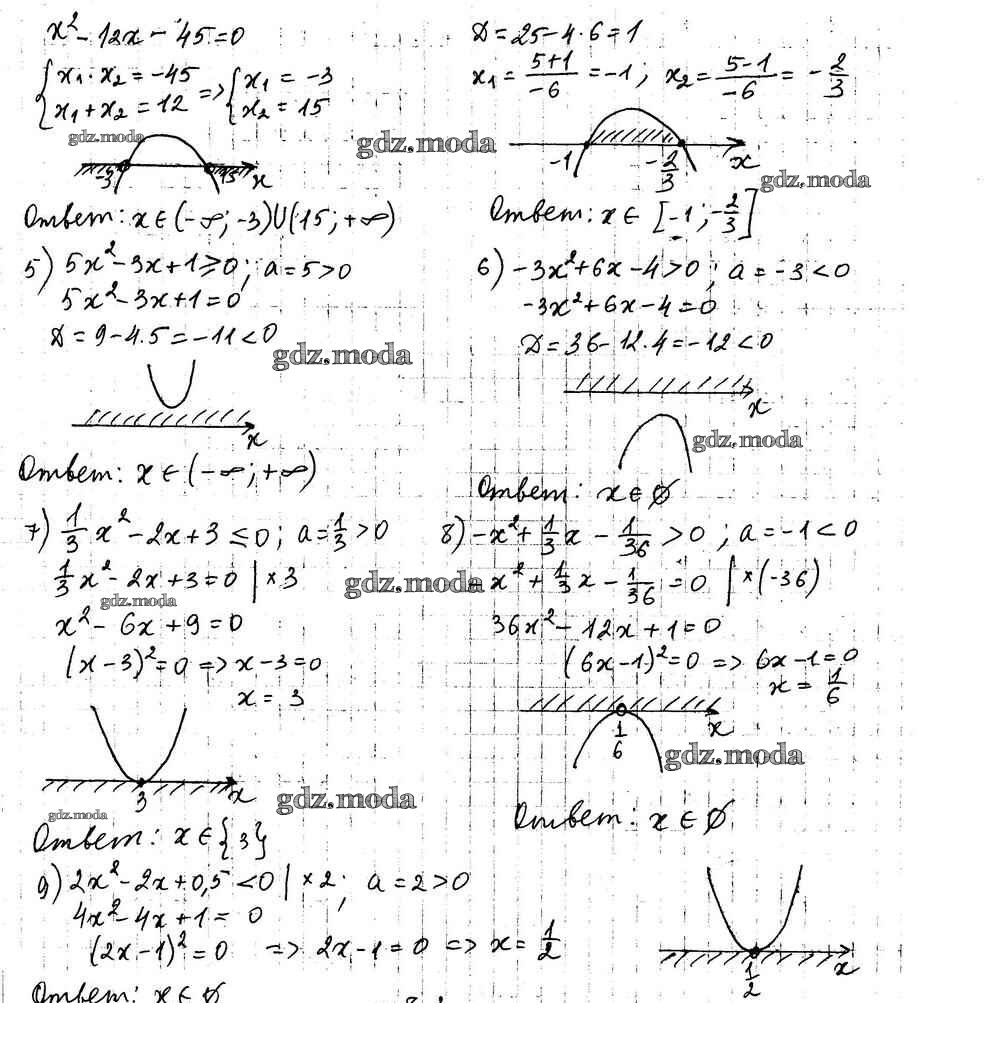 x² - 12x - 45 = 0
{ x₁ · x₂ = -45 => { x₁ = -3
{ x₁ + x₂ = 12 { x₂ = 15
gdz.moda
-3 15 x
Ответ: x ∈ (-∞; -3) ∪ (15; +∞)
D = 25 - 4·6 = 1
x₁ = (5+1)/(-6) = -1; x₂ = (5-1)/(-6) = -2/3
gdz.moda
-1 -2/3 x
gdz.moda
Ответ: x ∈ [-1; -2/3]
5) 5x² - 3x + 1 ≥ 0; a = 5 > 0
5x² - 3x + 1 = 0
D = 9 - 4·5 = -11 < 0
gdz.moda
x
Ответ: x ∈ (-∞; +∞)
6) -3x² + 6x - 4 > 0; a = -3 < 0
-3x² + 6x - 4 = 0
D = 36 - 12·4 = -12 < 0
x
gdz.moda
Ответ: x ∈ ∅
7) 1/3 x² - 2x + 3 ≤ 0; a = 1/3 > 0
1/3 x² - 2x + 3 = 0 | × 3
gdz.moda
gdz.moda
x² - 6x + 9 = 0
(x - 3)² = 0 => x - 3 = 0
x = 3
3 x
gdz.moda
gdz.moda
Ответ: x ∈ {3}
8) -x² + 1/3 x - 1/36 > 0; a = -1 < 0
-x² + 1/3 x - 1/36 = 0 | × (-36)
36x² - 12x + 1 = 0
(6x - 1)² = 0 => 6x - 1 = 0
x = 1/6
1/6 x
gdz.moda
Ответ: x ∈ ∅
9) 2x² - 2x + 0,5 < 0 | × 2; a = 2 > 0
4x² - 4x + 1 = 0
(2x - 1)² = 0 => 2x - 1 = 0 => x = 1/2
1/2 x
Ответ: x ∈ ∅